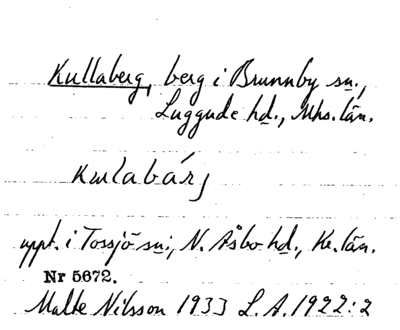 Kullaberg, berg i Brunnby sn.,
Luggude hd., Mhs. län.
kulabárj
uppt. i Tossjö sn., N. Åsbo hd., Kr. län.
Nr 5672.
Malte Nilsson 1933 L.A. 1922:2